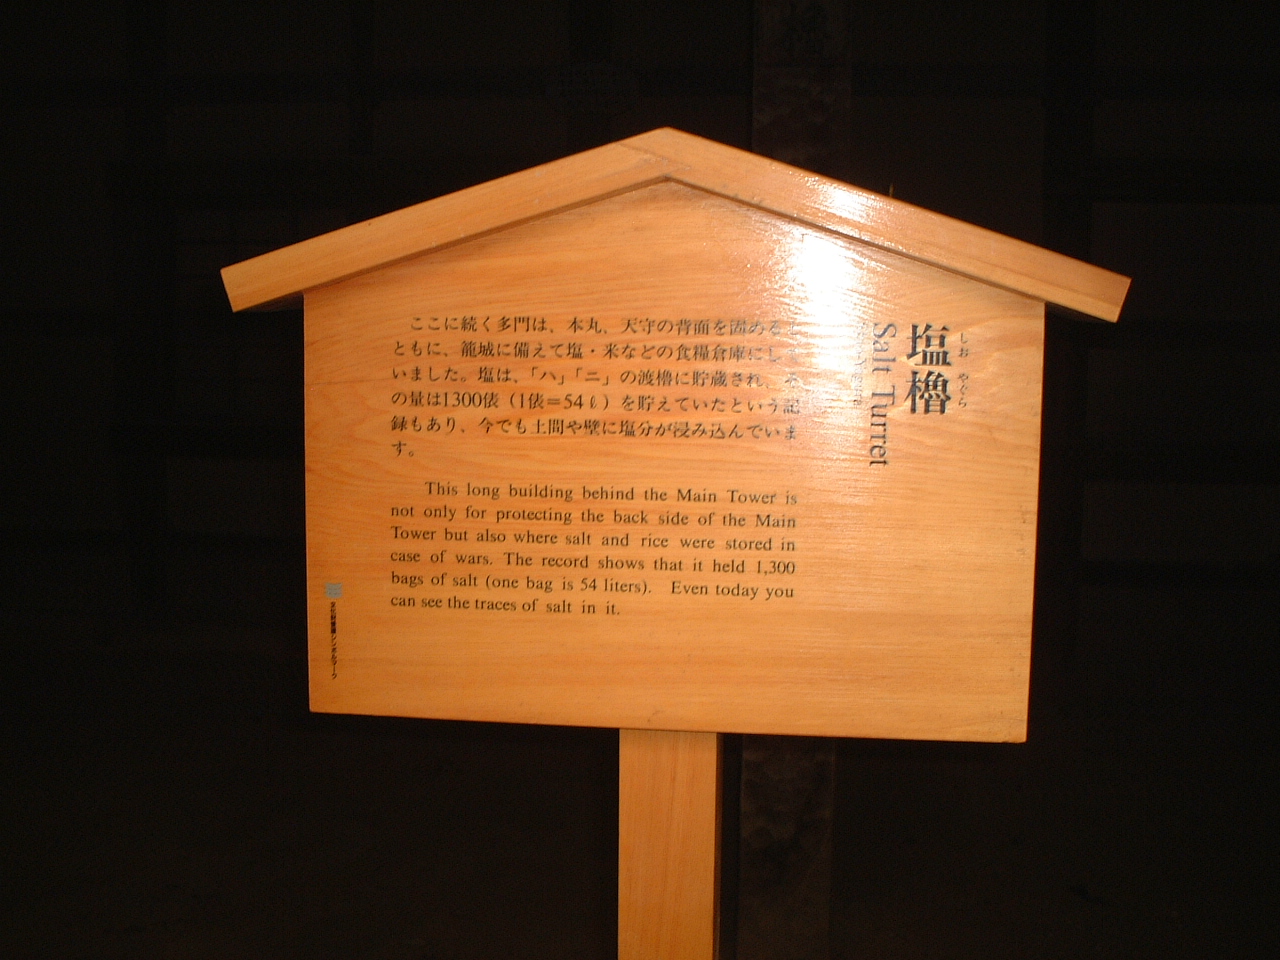 塩櫓
しお やぐら
Salt Turret
ここに続く多門は、本丸、天守の背面を固める
ともに、籠城に備えて塩・米などの食糧倉庫にし
いました。塩は、「ハ」「ニ」の渡櫓に貯蔵され、そ
の量は1300俵（1俵＝54ℓ）を貯えていたという記
録もあり、今でも土間や壁に塩分が浸み込んでいま
す。
This long building behind the Main Tower is
not only for protecting the back side of the Main
Tower but also where salt and rice were stored in
case of wars. The record shows that it held 1,300
bags of salt (one bag is 54 liters). Even today you
can see the traces of salt in it.
文化財愛護シンボルマーク